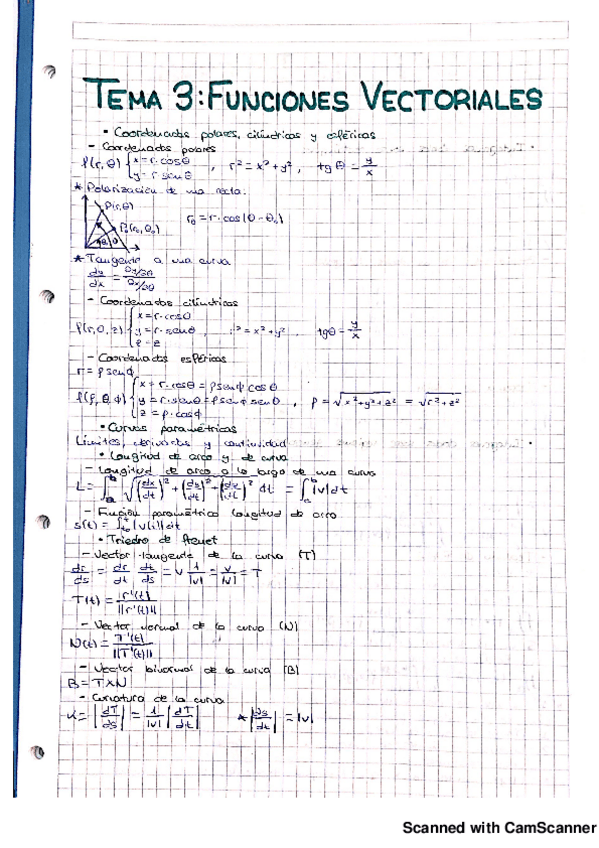 TEMA 3: FUNCIONES VECTORIALES
• Coordenadas polares, cilíndricas y esféricas
- Coordenadas polares
P(r, θ) { x = r·cosθ , r² = x² + y² , tg θ = y/x
y = r senθ
* Polarización de una recta:
P(r,θ)
P₀(r₀, θ₀) r₀ = r·cos(θ - θ₀)
* Tangente a una curva
dy/dx =
- Coordenadas cilíndricas
x = r·cosθ
P(r, θ, z) { y = r·senθ , r² = x² + y² , tgθ = y/x
- Coordenadas esféricas
r = ρ senϕ
x = r·cosθ = ρ senϕ cosθ
P(ρ, θ, ϕ) { y = r·senθ = ρ senϕ senθ , ρ = √(x² + y² + z²) = √(r² + z²)
z = ρ·cosϕ
• Curvas paramétricas
Límites, derivadas y continuidad
• Longitud de arco y de curva
- Longitud de arco a lo largo de una curva
L = ∫ₐᵇ √((dx/dt)² + (dy/dt)² + (dz/dt)²) dt = ∫ₐᵇ |v|dt
- Función paramétrica longitud de arco
s(t) = |v(t)|dt
• Triedro de Frenet
- Vector tangente de la curva (T)
dr/ds = dr/dt dt/ds = v 1/|v| = v/|v| = T
T(t) = r'(t)/||r'(t)||
- Vector normal de la curva (N)
N(t) = T'(t)/||T'(t)||
- Vector binormal de la curva (B)
B = T×N
- Curvatura de la curva
κ = |dT/ds| = 1/|v| |dT/dt| * |ds/dt| = |v|
Scanned with CamScanner